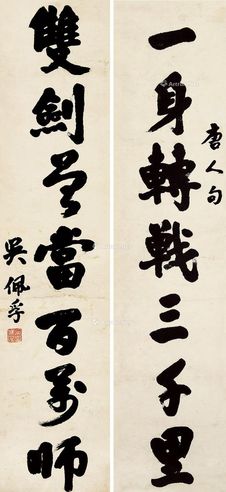 一身轉戰三千里
唐人句
雙劍曾當百萬師
吳佩孚